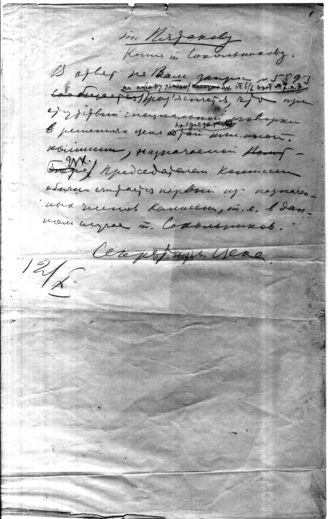 т. Пятакову
Копия т. Сокольникову.
В ответ на Ваш запрос № 5893
сообщается, что при
отсутствии специальной оговорки
в решениях цека о той или иной
комиссии, назначаемой Полит-
Бюро, Председателем комиссии
обычно считается первый из назначен-
ных членов Комиссии, т.е. в дан-
ном случае т. Сокольников.
Секретарь Цека
12/X